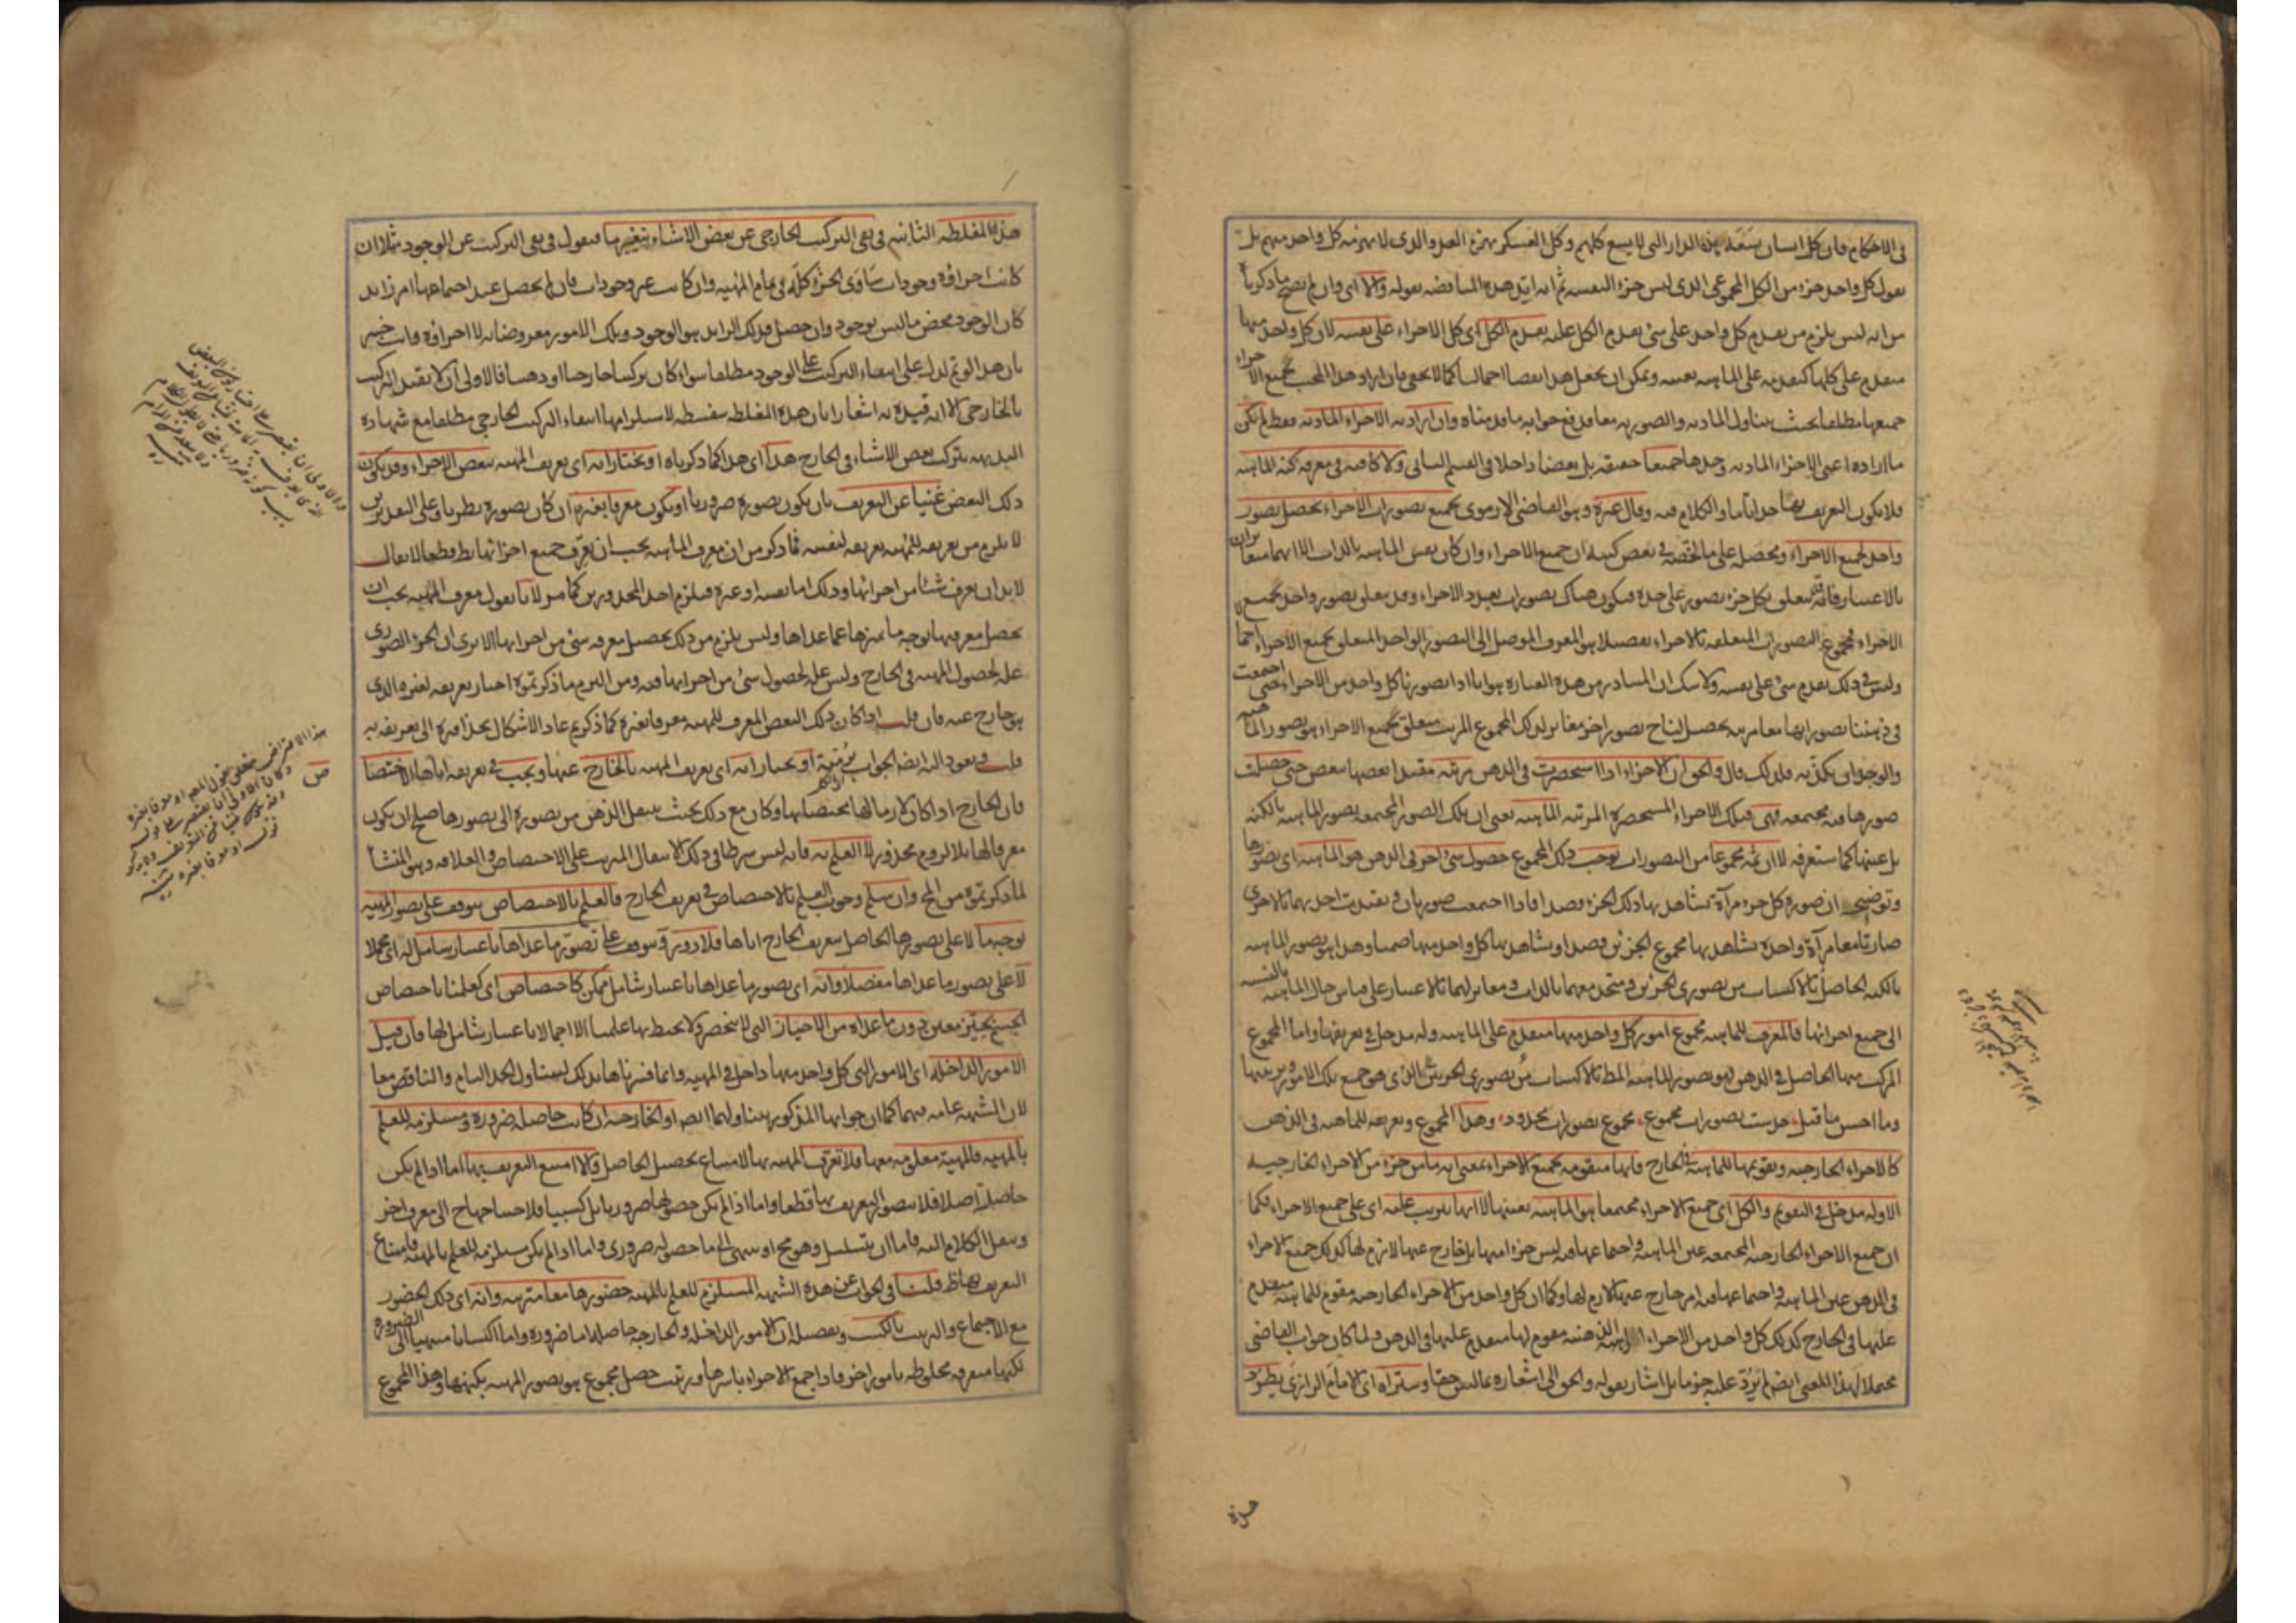 في الاحكام فان كل انسان يسعه هذه الدار التي لا يسع كلهم وكل العسكر يهزم العدو الذي لا يهزمه كل واحد منهم بل
نقول كل واحد جزء من الكل المجموعي الذي ليس جزء لنفسه ثم انه ايد هذه المناقضة بقوله والا اي وان لم يصح ما ذكرنا
من انه ليس يلزم من تقدم كل واحد على شئ تقدم الكل عليه تقدم الكل اي كل الاجزاء على نفسه لان كل واحد منها
متقدم على كلها كتقدمه على الماهية نفسه ويمكن ان يجعل هذا نقضا اجماليا كما لا يخفى فان اراد هذا المجيب بجميع الاجزاء
جميعها مطلقا بحيث يتناول المادية والصورية معا فدفع جوابه ما قدمناه وان اراد به الاجزاء المادية فقط لم تكن
ما اراده اعني الاجزاء المادية وحدها جميعا حقيقة بل بعضا داخلا في القسم الثاني ولا كافية في معرفة كنه الماهية
فلا يكون التعريف بها حدا تاما والكلام فيه وقال غيره وهو القاضي الارموي بجميع تصورات الاجزاء يحصل تصور
واحد لجميع الاجزاء ومحصله على ما لخصه في بعض كتبه ان جميع الاجزاء وان كان نفس الماهية بالذات الا انهما متغايران
بالاعتبار فانه قد يتعلق بكل جزء تصور على حدة فيكون هناك تصورات بعدد الاجزاء وقد يتعلق تصور واحد بجميع
الاجزاء فمجموع التصورات المتعلقة بالاجزاء تفصيلا هو المعرف الموصل الى التصور الواحد المتعلق بجميع الاجزاء اجمالا
وليس في ذلك تقدم شئ على نفسه ولا شك ان المتبادر من هذه العبارة هو انا اذا تصورنا كل واحد من الاجزاء حتى اجتمعت
في ذهننا تصوراتها معا مرتبة يحصل لنا ح تصور اخر مغاير لذلك المجموع المرتب متعلق بجميع الاجزاء هو تصور الماهية
والوجدان يكذبه فلذلك قال والحق ان الاجزاء اذا استحضرت في الذهن مرتبة مقيدا بعضها ببعض حتى حصلت
صورها فيه مجتمعة فهي فتلك الاجزاء المستحضرة المرتبة الماهية يعني ان تلك الصور المجتمعة تصور الماهية بالكنه
بل عينها كما ستعرفه لا ان ثمه مجموعا من التصورات يوجب ذلك المجموع حصول شئ اخر في الذهن هو الماهية اي تصورها
وتوضيحه ان صورة كل جزء مرآة تشاهد بها ذلك الجزء قصدا فاذا اجتمعت صورتان وتقيدت احديهما بالاخرى
صارتا معا مرآة واحدة تشاهد بها مجموع الجزئين قصدا وتشاهد بها كل واحد منهما ضمنا وهذا هو تصور الماهية
بالكنه الحاصل بالاكتساب من تصوري الجزئين ومتحد معهما بالذات ومغاير لهما بالاعتبار على قياس حال الماهية بالنسبة
الى جميع اجزائها فالمعرف للماهية مجموع امور كل واحد منها متقدم على الماهية وله مدخل في تعريفها واما المجموع
المركب منها الحاصل في الذهن فهو تصور الماهية المط بالاكتساب من تصوري الجزئين الذي هو جمع تلك الامور وترتيبها
وما احسن ما قيل حدست تصورات مجموع مجموع تصورات محدود وهذا المجموع وتعريفه للماهية في الذهن
كالاجزاء الخارجية وتقويمها للماهية في الخارج فانها متقومة بجميع الاجزاء بمعنى انه ما من جزء من الاجزاء الخارجية
الا وله مدخل في التقويم والكل اي جميع الاجزاء مجتمعا هو الماهية بعينها لا انها يترتب عليه اي على جميع الاجزاء فكما
ان جميع الاجزاء الخارجية المجتمعة عين الماهية واجتماعها فيه ليس جزءا منها بل خارج عنها لازم لها كذلك جميع الاجزاء
في الذهن عين الماهية واجتماعها فيه امر خارج عنها لازم لها وكما ان كل واحد من الاجزاء الخارجية مقوم للماهية متقدم
عليها في الخارج كذلك كل واحد من الاجزاء الذهنية مقوم لها متقدم عليها في الذهن ولما كان جواب القاضي
محتملا لهذا المعنى ايضا لم يرد عليه جزما بل اشار بقوله والحق الى اشعاره بما ليس حقا وستراه اي الامام الرازي يطرد
هذه
هذه المغلطة الثانية في نفي التركيب الخارجي عن بعض الاشياء بتغييرها فيقول في نفي التركيب عن الوجود مثلا ان
كانت اجزاؤه وجودات ساوى الجزء كله في تمام المهية وان كانت غير وجودات فان لم يحصل عند اجتماعها امر زايد
كان الوجود محض ما ليس بوجود وان حصل فذلك الزايد هو الوجود وتلك الامور معروضاته لا اجزاؤه وانت خبير
بان هذا لو تم لدل على انتفاء التركيب على الوجود مطلقا سواء كان تركيبا خارجيا او ذهنيا فالاولى ان لا يقيد التركيب
بالخارجي الا انه قيده به اشعارا بان هذه المغلطة سفسطة لاستلزامها انتفاء التركيب الخارجي مطلقا مع شهادة
البديهة بتركب بعض الاشياء في الخارج هذا اي هذا كما ذكرناه او نختار انه اي تعريف المهية ببعض الاجزاء وقد يكون
ذلك البعض غنيا عن التعريف بان يكون تصوره ضروريا او يكون معرفا بغيره ان كان تصوره نظريا وعلى التقديرين
لا يلزم من تعريفه للمهية تعريفه لنفسه فما ذكر من ان معرف الماهية يجب ان يعرف جميع اجزائها بط قطعا لا يقال
لا بد ان يعرف شيئا من اجزائها وذلك اما نفسه او غيره فيلزم احد المحذورين كما مر لانا نقول معرف المهية يجب ان
يحصل معرفتها بوجه ما يميزها عما عداها وليس يلزم من ذلك تحصيل معرفة شئ من اجزائها الا يرى ان الجزء الصوري
علة لحصول المهية في الخارج وليس علة لحصول شئ من اجزائها فيه ومن التزم ما ذكرتموه اختار تعريفه لغيره الذي
هو خارج عنه فان قلت اذا كان ذلك البعض المعرف للمهية معرفا بغيره كما ذكرتم عاد الاشكال بحذافيره الى تعريفه به
قلت ويعود اليه ايضا الجواب برمته او نختار انه اي تعريف المهية بالخارج عنها ويجب في تعريفه اياها الاختصاص
فان الخارج اذا كان لازما لها مختصا بها وكان مع ذلك بحيث ينتقل الذهن من تصوره الى تصورها صلح ان يكون
معرفا لها بلا لزوم محذور لا العلم به فانه ليس شرطا في ذلك الانتقال المترتب على الاختصاص والعلاقة وهو المنشأ
لما ذكرتموه من المح وان سلم وجوب العلم بالاختصاص في تعريف الخارج فالعلم بالاختصاص يتوقف على تصور المهية
بوجه ما لا على تصورها الحاصل بتعريف الخارج اياها فلا دور ويتوقف على تصور ما عداها باعتبار شامل له اي مجملا
لا على تصور ما عداها مفصلا وانه اي تصور ما عداها باعتبار شامل ممكن كاختصاص اي كعلمنا باختصاص
الجسم بحيز معين دون ما عداه من الاحياز التي لا تنحصر ولا يحيط بها علمنا الا اجمالا باعتبار شامل لها فان قيل
الامور الداخلة اي الامور التي كل واحد منها داخل في المهية وانما فسرناها بذلك ليتناول الحد التام والناقص معا
لان الشبهة عامة فيهما كما ان جوابها المذكور يتناولهما ايضا او الخارجة ان كانت حاصلة ضرورة ومستلزمة للعلم
بالمهية فالمهية معلومة معها فلا تعرف المهية بها لامتناع تحصيل الحاصل والا امتنع التعريف بها اما اذا لم يكن
حاصلة اصلا فلا يتصور التعريف بها قطعا واما اذا لم يكن حصولها ضروريا بل كسبيا فلاحتياجها ح الى معرف اخر
وينقل الكلام اليه فاما ان يتسلسل وهو مح او ينتهي الى ما حصوله ضروري واما اذا لم يكن مستلزمة للعلم بالمهية فامتناع
التعريف بها ظ قلنا في الجواب عن هذه الشبهة المستلزم للعلم بالمهية حضورها معا مترتبة وانه اي ذلك الحضور
مع الاجتماع والترتيب بالكسب وتفصيله ان الامور الداخلة والخارجة حاصلة اما ضرورة واما اكتسابا منتهيا الى الضرورة
لكنها متفرقة مخلوطة بامور اخر فاذا جمع الاجزاء باسرها ورتبت حصل مجموع هو تصور المهية بكنهها وهذا المجموع